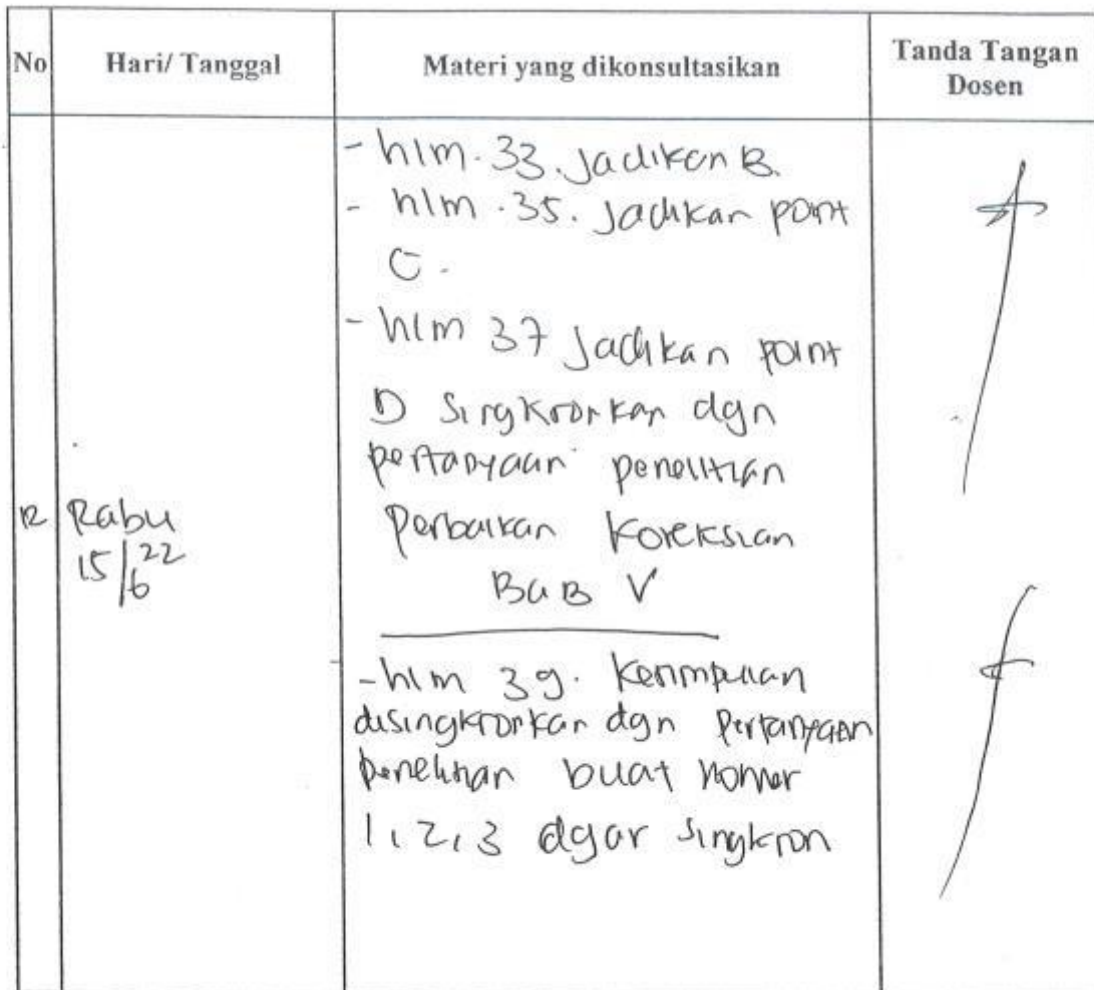 No
Hari/ Tanggal
Materi yang dikonsultasikan
Tanda Tangan
Dosen
12
Rabu
15/6 22
- hlm. 33. Jadikan B.
- hlm. 35. Jadikan point
C.
- hlm 37 Jadikan point
D Singkronkan dgn
pertanyaan penelitian
Perbaikan Koreksian
BaB V
- hlm 39. Kesimpulan
disingkronkan dgn Pertanyaan
penelitian buat nomer
1, 2, 3 agar singkron